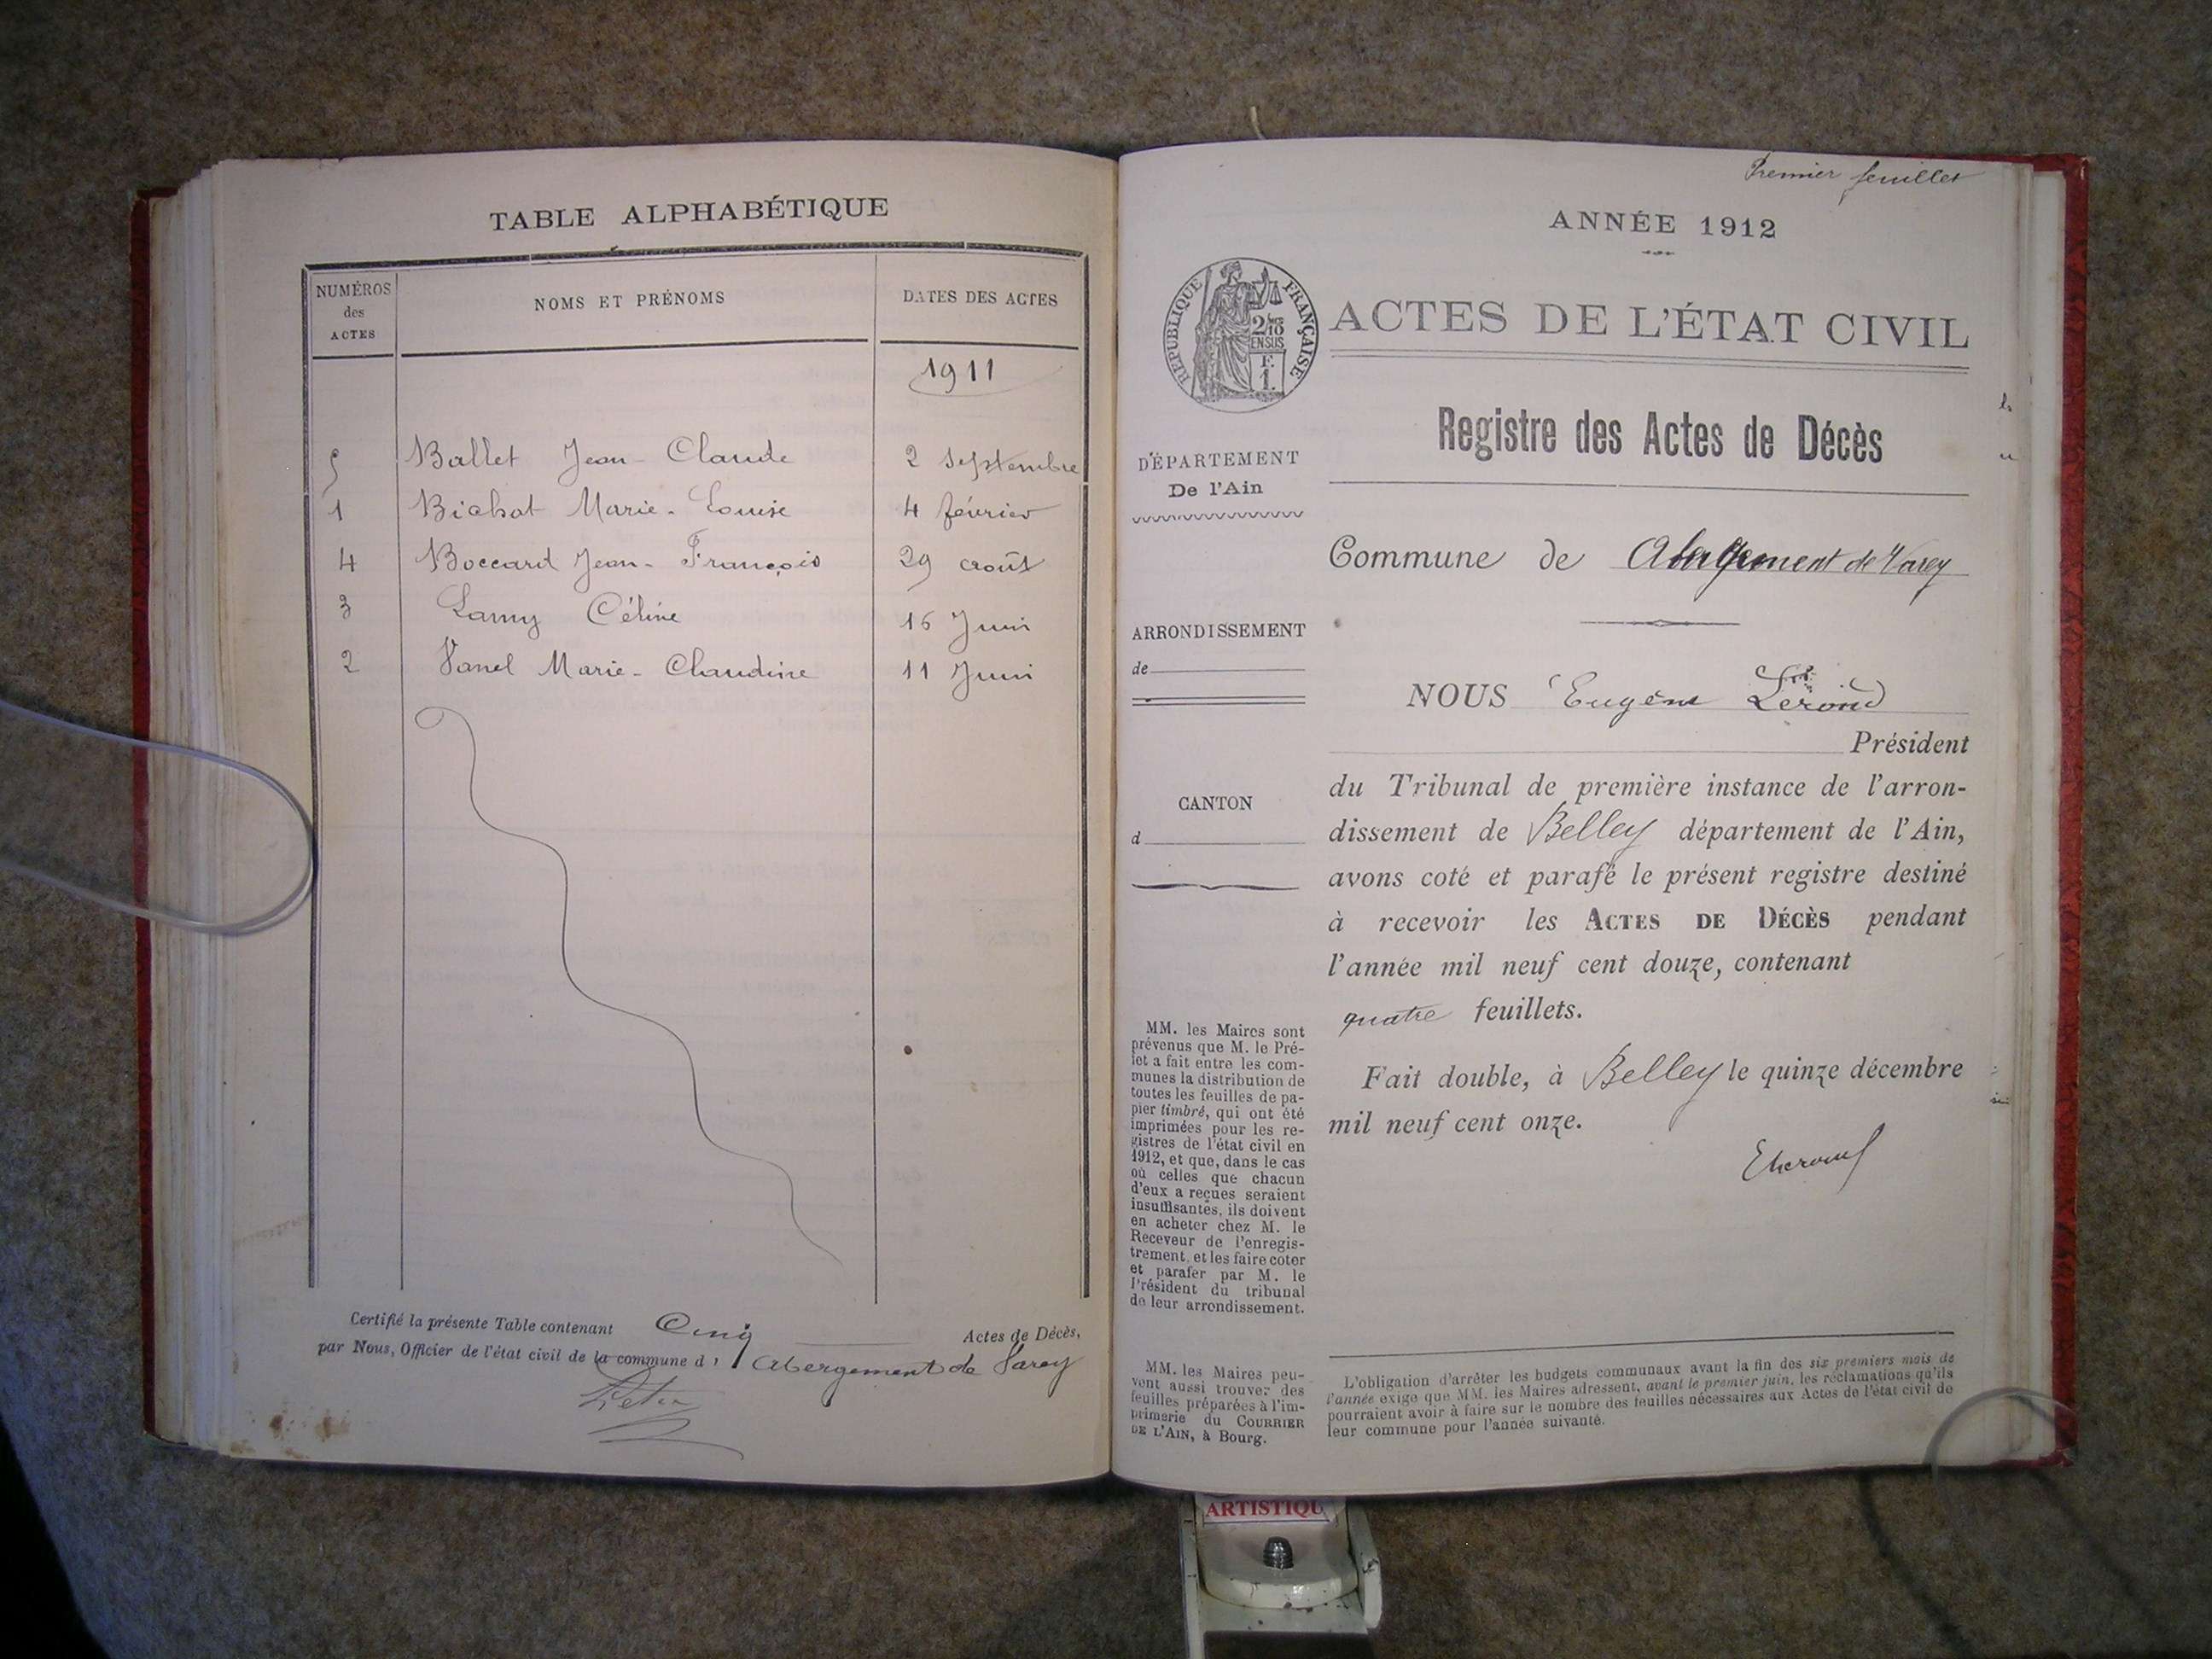 TABLE ALPHABÉTIQUE
NUMÉROS des ACTES
NOMS ET PRÉNOMS
DATES DES ACTES
1911
5 Ballet Jean-Claude 2 septembre
1 Bichat Marie-Louise 4 février
4 Boccard Jean-François 29 août
3 Lamy Céline 16 Juin
2 Vanel Marie-Claudine 11 Juin
Certifié la présente Table contenant Cinq Actes de Décès,
par Nous, Officier de l'état civil de la commune d' Abergement de Varey
Premier feuillet
ANNÉE 1912
RÉPUBLIQUE FRANÇAISE
ACTES DE L'ÉTAT CIVIL
Registre des Actes de Décès
DÉPARTEMENT
De l'Ain
Commune de Abergement de Varey
ARRONDISSEMENT
de
NOUS Eugène Lerond
Président
du Tribunal de première instance de l'arron-
dissement de Belley département de l'Ain,
avons coté et parafé le présent registre destiné
à recevoir les ACTES DE DÉCÈS pendant
l'année mil neuf cent douze, contenant
quatre feuillets.
Fait double, à Belley le quinze décembre
mil neuf cent onze.
CANTON
d
MM. les Maires sont
prévenus que M. le Pré-
fet a fait entre les com-
munes la distribution de
toutes les feuilles de pa-
pier timbré, qui ont été
imprimées pour les re-
gistres de l'état civil en
1912, et que, dans le cas
où celles que chacun
d'eux a reçues seraient
insuffisantes, ils doivent
en acheter chez M. le
Receveur de l'enregis-
trement, et les faire coter
et parafer par M. le
Président du tribunal
de leur arrondissement.
MM. les Maires peu-
vent aussi trouver des
feuilles préparées à l'im-
primerie du COURRIER
DE L'AIN, à Bourg.
L'obligation d'arrêter les budgets communaux avant la fin des six premiers mois de
l'année exige que MM. les Maires adressent, avant le premier juin, les réclamations qu'ils
pourraient avoir à faire sur le nombre des feuilles nécessaires aux Actes de l'état civil de
leur commune pour l'année suivante.
ARTISTIQU